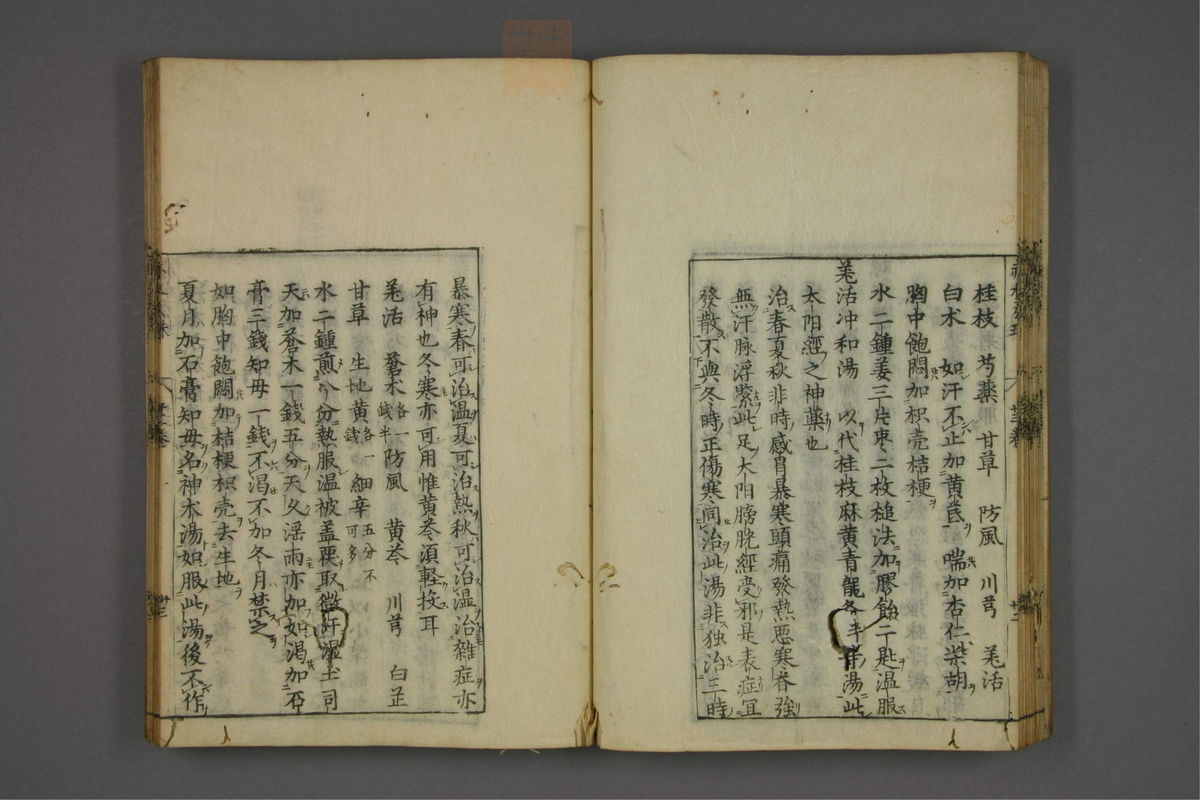 桂枝 芍薬 甘草 防風 川芎 羌活
白朮 如汗不止加黄芪 喘加杏仁柴胡
胸中飽悶加枳壳桔梗
水二鍾姜三片枣二枚槌法加膠飴二匙温服
羌活冲和湯 以代桂枝麻黄青龍各半等湯此
太阳經之神薬也
治春夏秋非時感冒暴寒頭痛發熱悪寒脊強
無汗脉浮緊此足太阳膀胱經受邪是表症宜
發散不與冬時正傷寒同治此湯非独治三時
暴寒春可治温夏可治熱秋可治温治雜症亦
有神也冬寒亦可用惟黄芩湏軽投耳
羌活 蒼朮各一錢半 防風 黄芩 川芎 白芷
甘草 生地黄各一錢 細辛五分不可多
水二鍾煎八分熱服温被盖覆取微汗湿土司
天加蒼朮一錢五分天久滛雨亦加如渇加石
膏三錢知母一錢不渇不加冬月禁之
如胸中飽悶加桔梗枳壳去生地
夏月加石膏知母名神朮湯如服此湯後不作